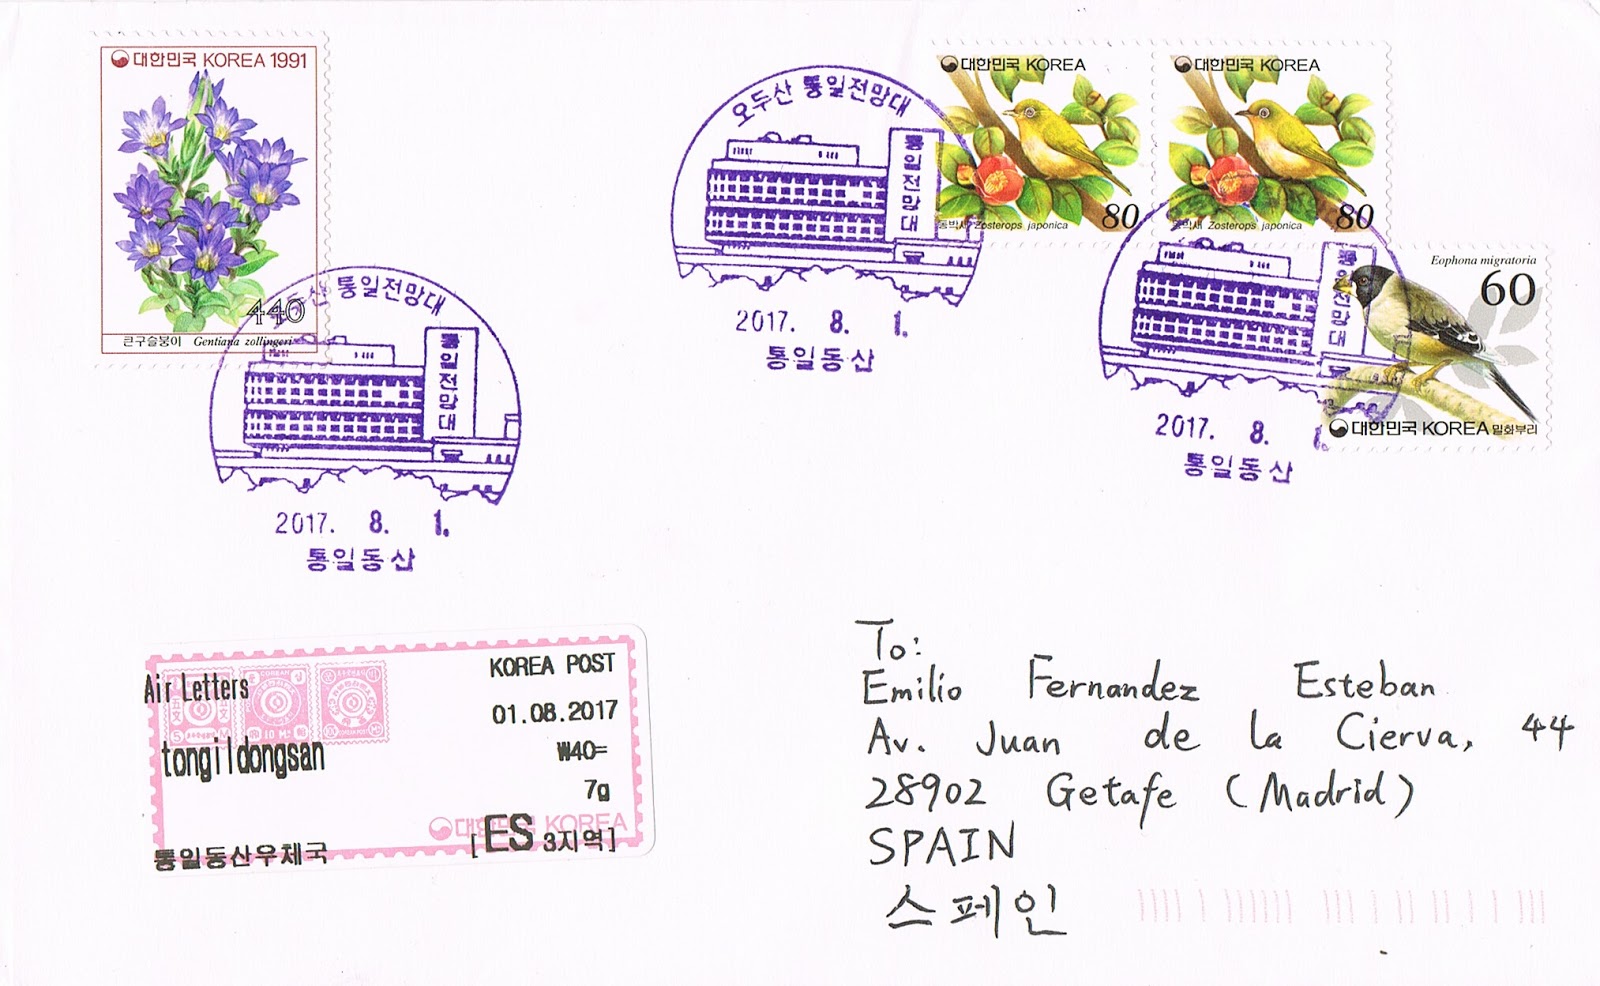 대한민국 KOREA 1991
440
큰구슬붕이 Gentiana zollingeri
오두산 통일전망대
통일전망대
2017. 8. 1.
통일동산
오두산 통일전망대
통일전망대
2017. 8. 1.
통일동산
대한민국 KOREA
80
동박새 Zosterops japonica
대한민국 KOREA
80
동박새 Zosterops japonica
통일전망대
2017. 8. 1.
통일동산
Eophona migratoria
60
대한민국 KOREA 밀화부리
KOREA POST
Air Letters
01.08.2017
tongildongsan
₩40=
7g
대한민국 KOREA
통일동산우체국
[ES 3지역]
To:
Emilio Fernandez Esteban
Av. Juan de la Cierva, 44
28902 Getafe (Madrid)
SPAIN
스페인